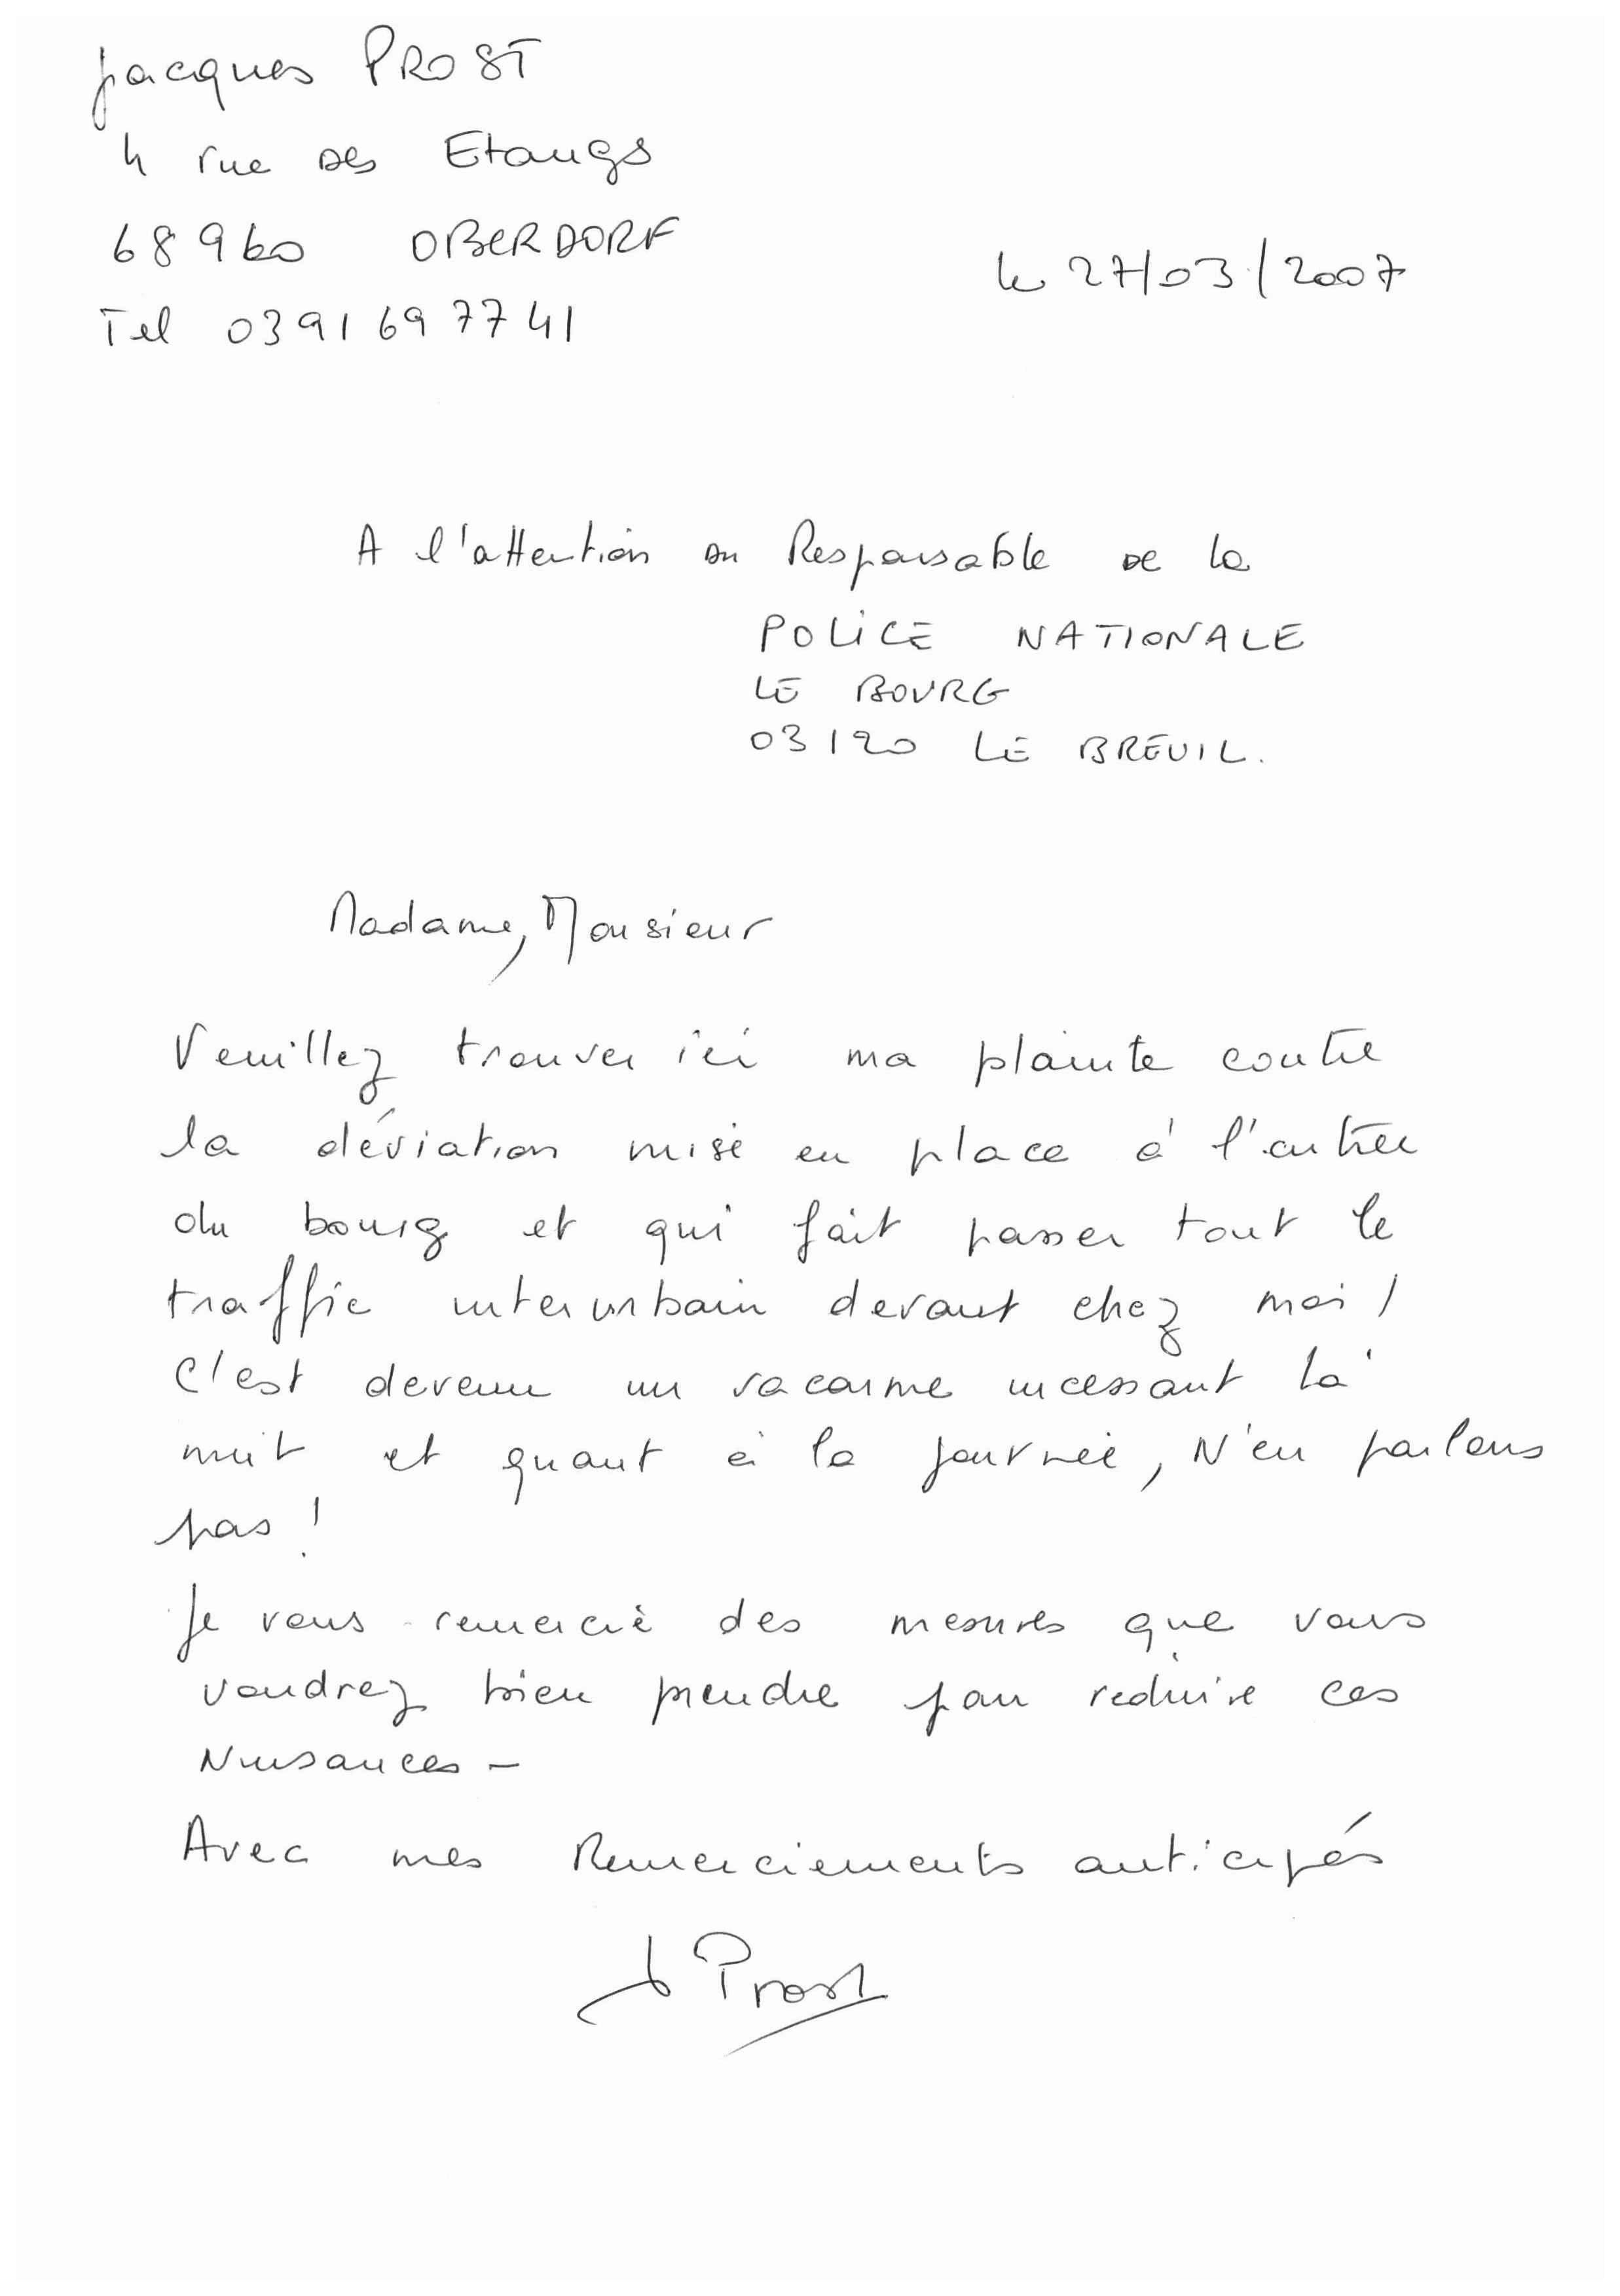 Jacques PROST
4 rue des Etangs
68960 OBERDORF
le 27/03/2007
Tel 03 91 69 77 41
A l'attention du Responsable de la
POLICE NATIONALE
LE BOURG
03120 LE BREUIL.
Madame, Monsieur
Veuillez trouver ici ma plainte contre
la déviation mise en place à l'entrée
du bourg et qui fait passer tout le
traffic interurbain devant chez moi !
C'est devenu un vacarme incessant la
nuit et quant à la journée, N'en parlons
pas !
Je vous remercie des mesures que vous
voudrez bien prendre pour réduire ces
Nuisances -
Avec mes Remerciements anticipés
J Prost